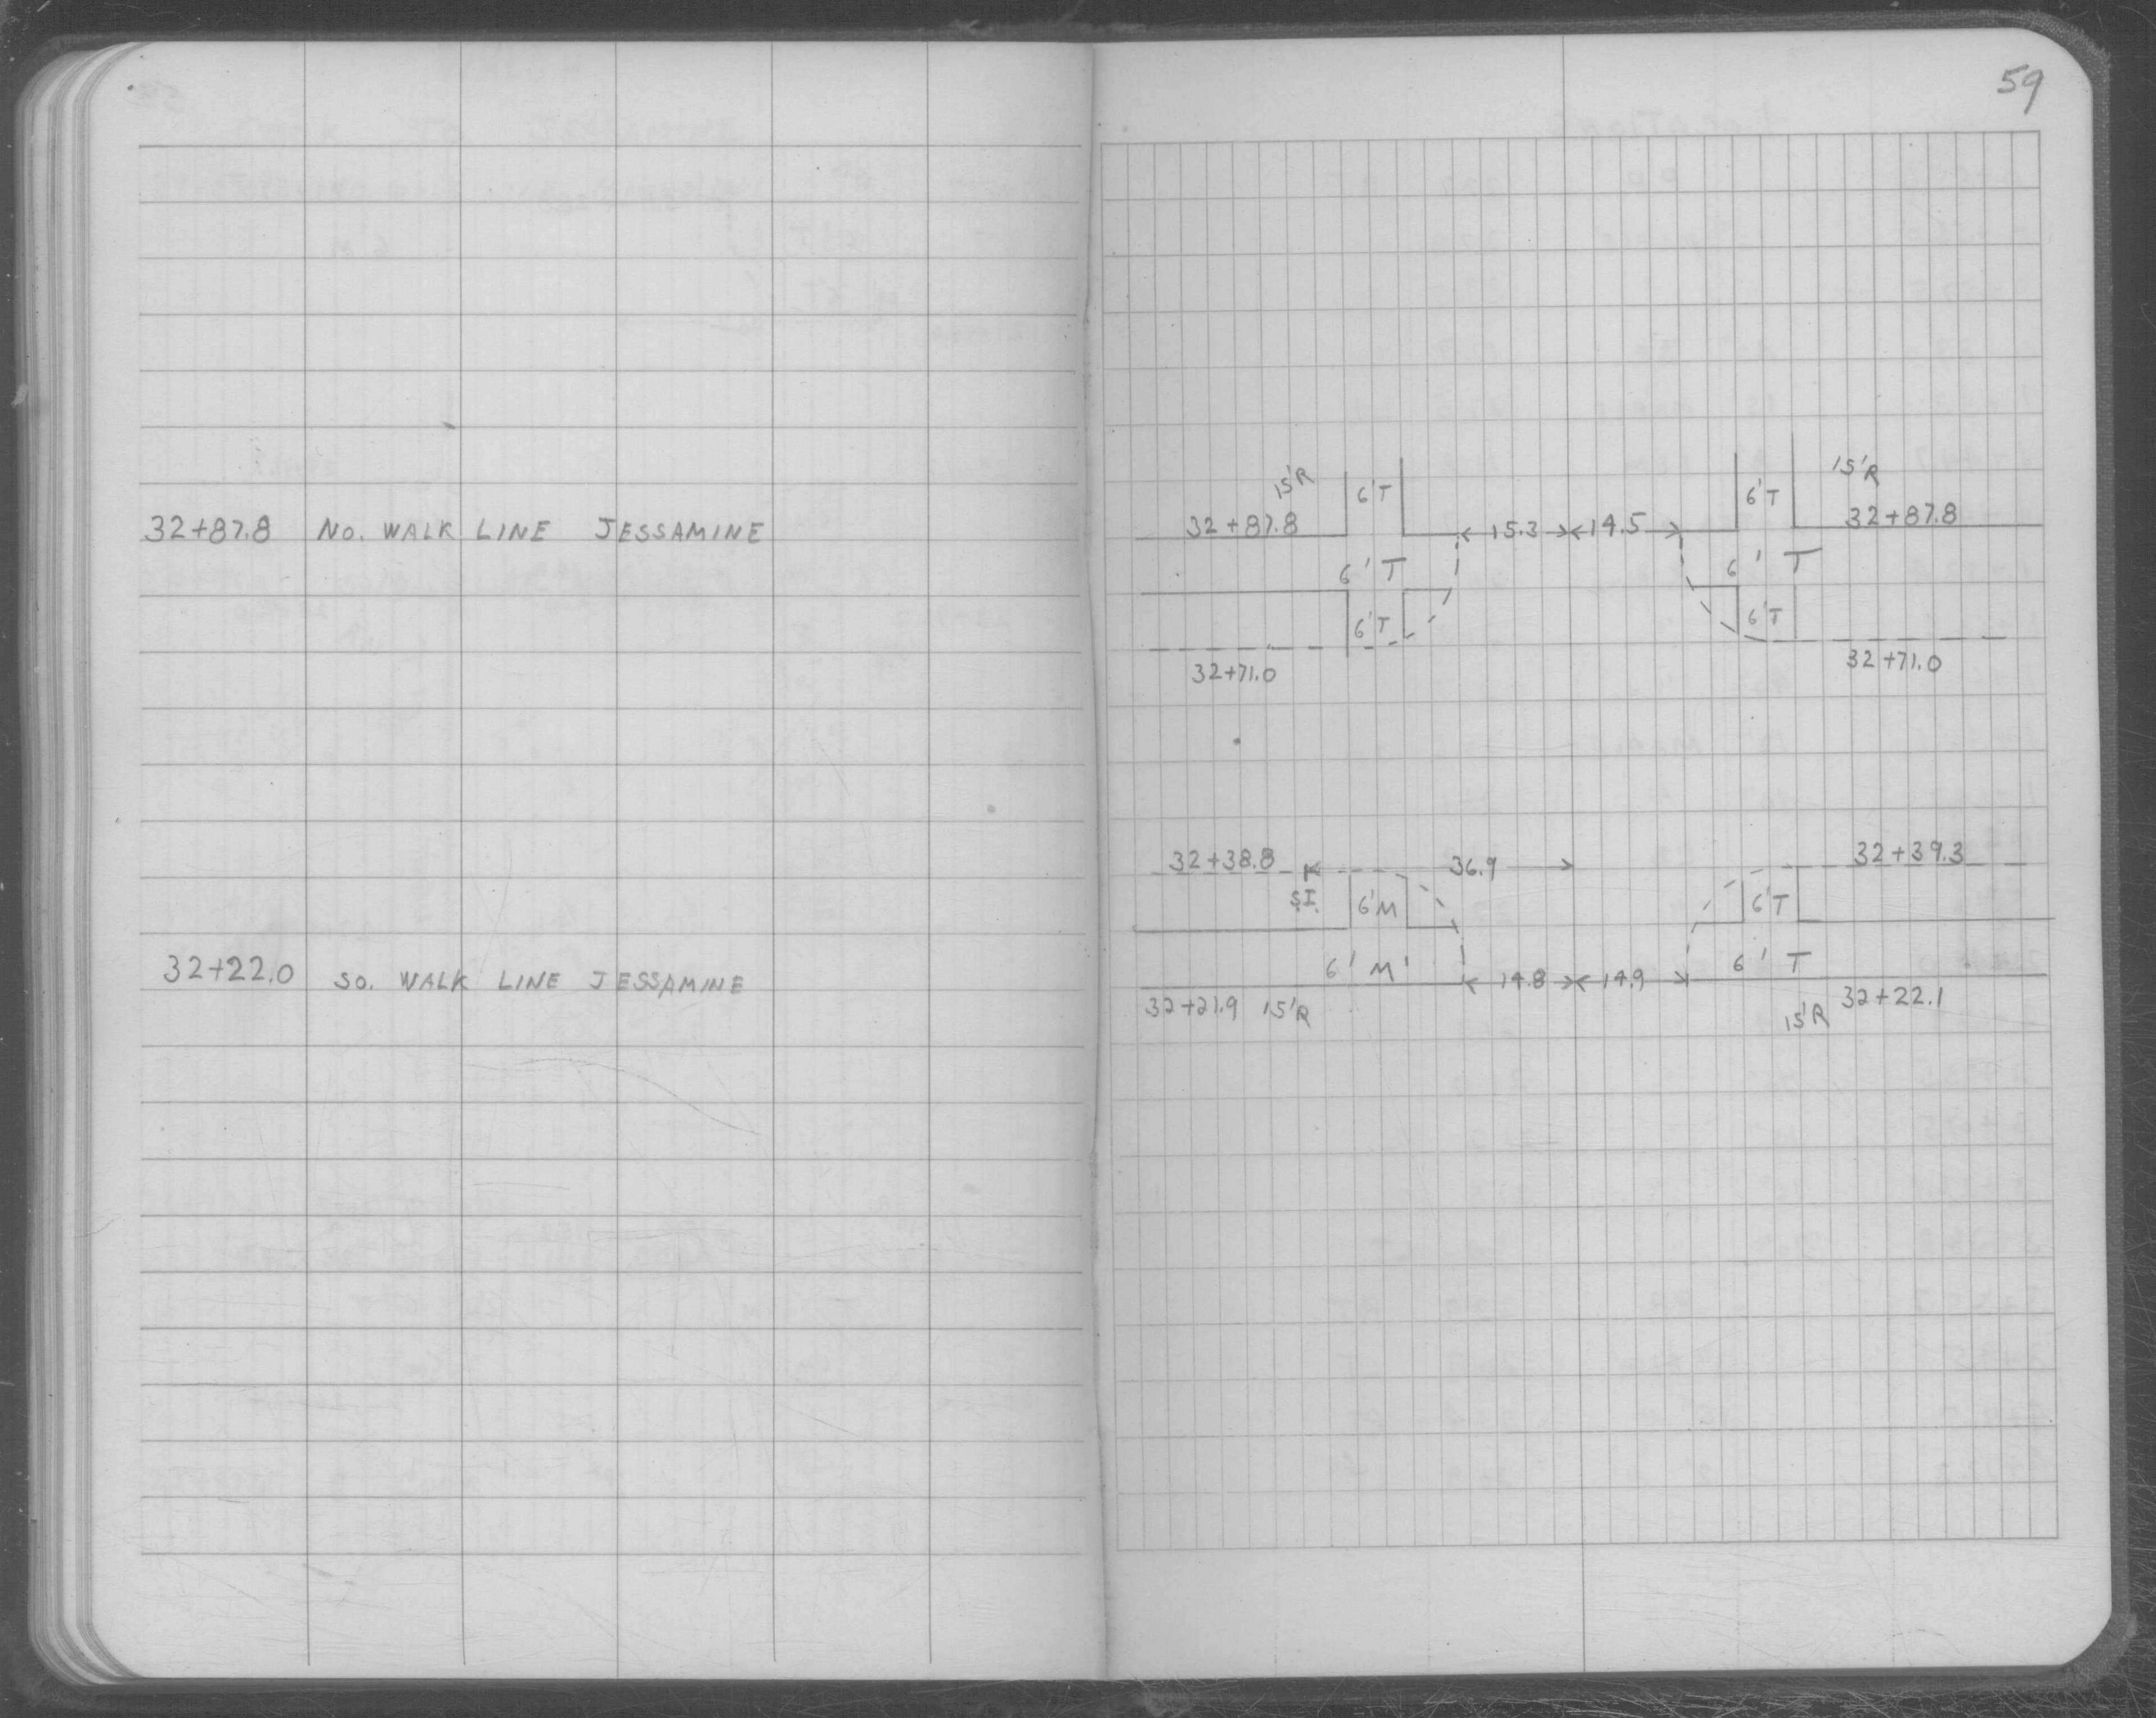 59
32+87.8 NO. WALK LINE JESSAMINE
15'R 6'T 6'T 15'R
32+87.8 15.3 14.5 32+87.8
6' T 6' T
6'T 6'T
32+71.0 32+71.0
32+38.8 36.9 32+39.3
S.I. 6'M 6'T
32+22.0 SO. WALK LINE JESSAMINE
6' M' 6' T
14.8 14.9
32+21.9 15'R 15'R 32+22.1